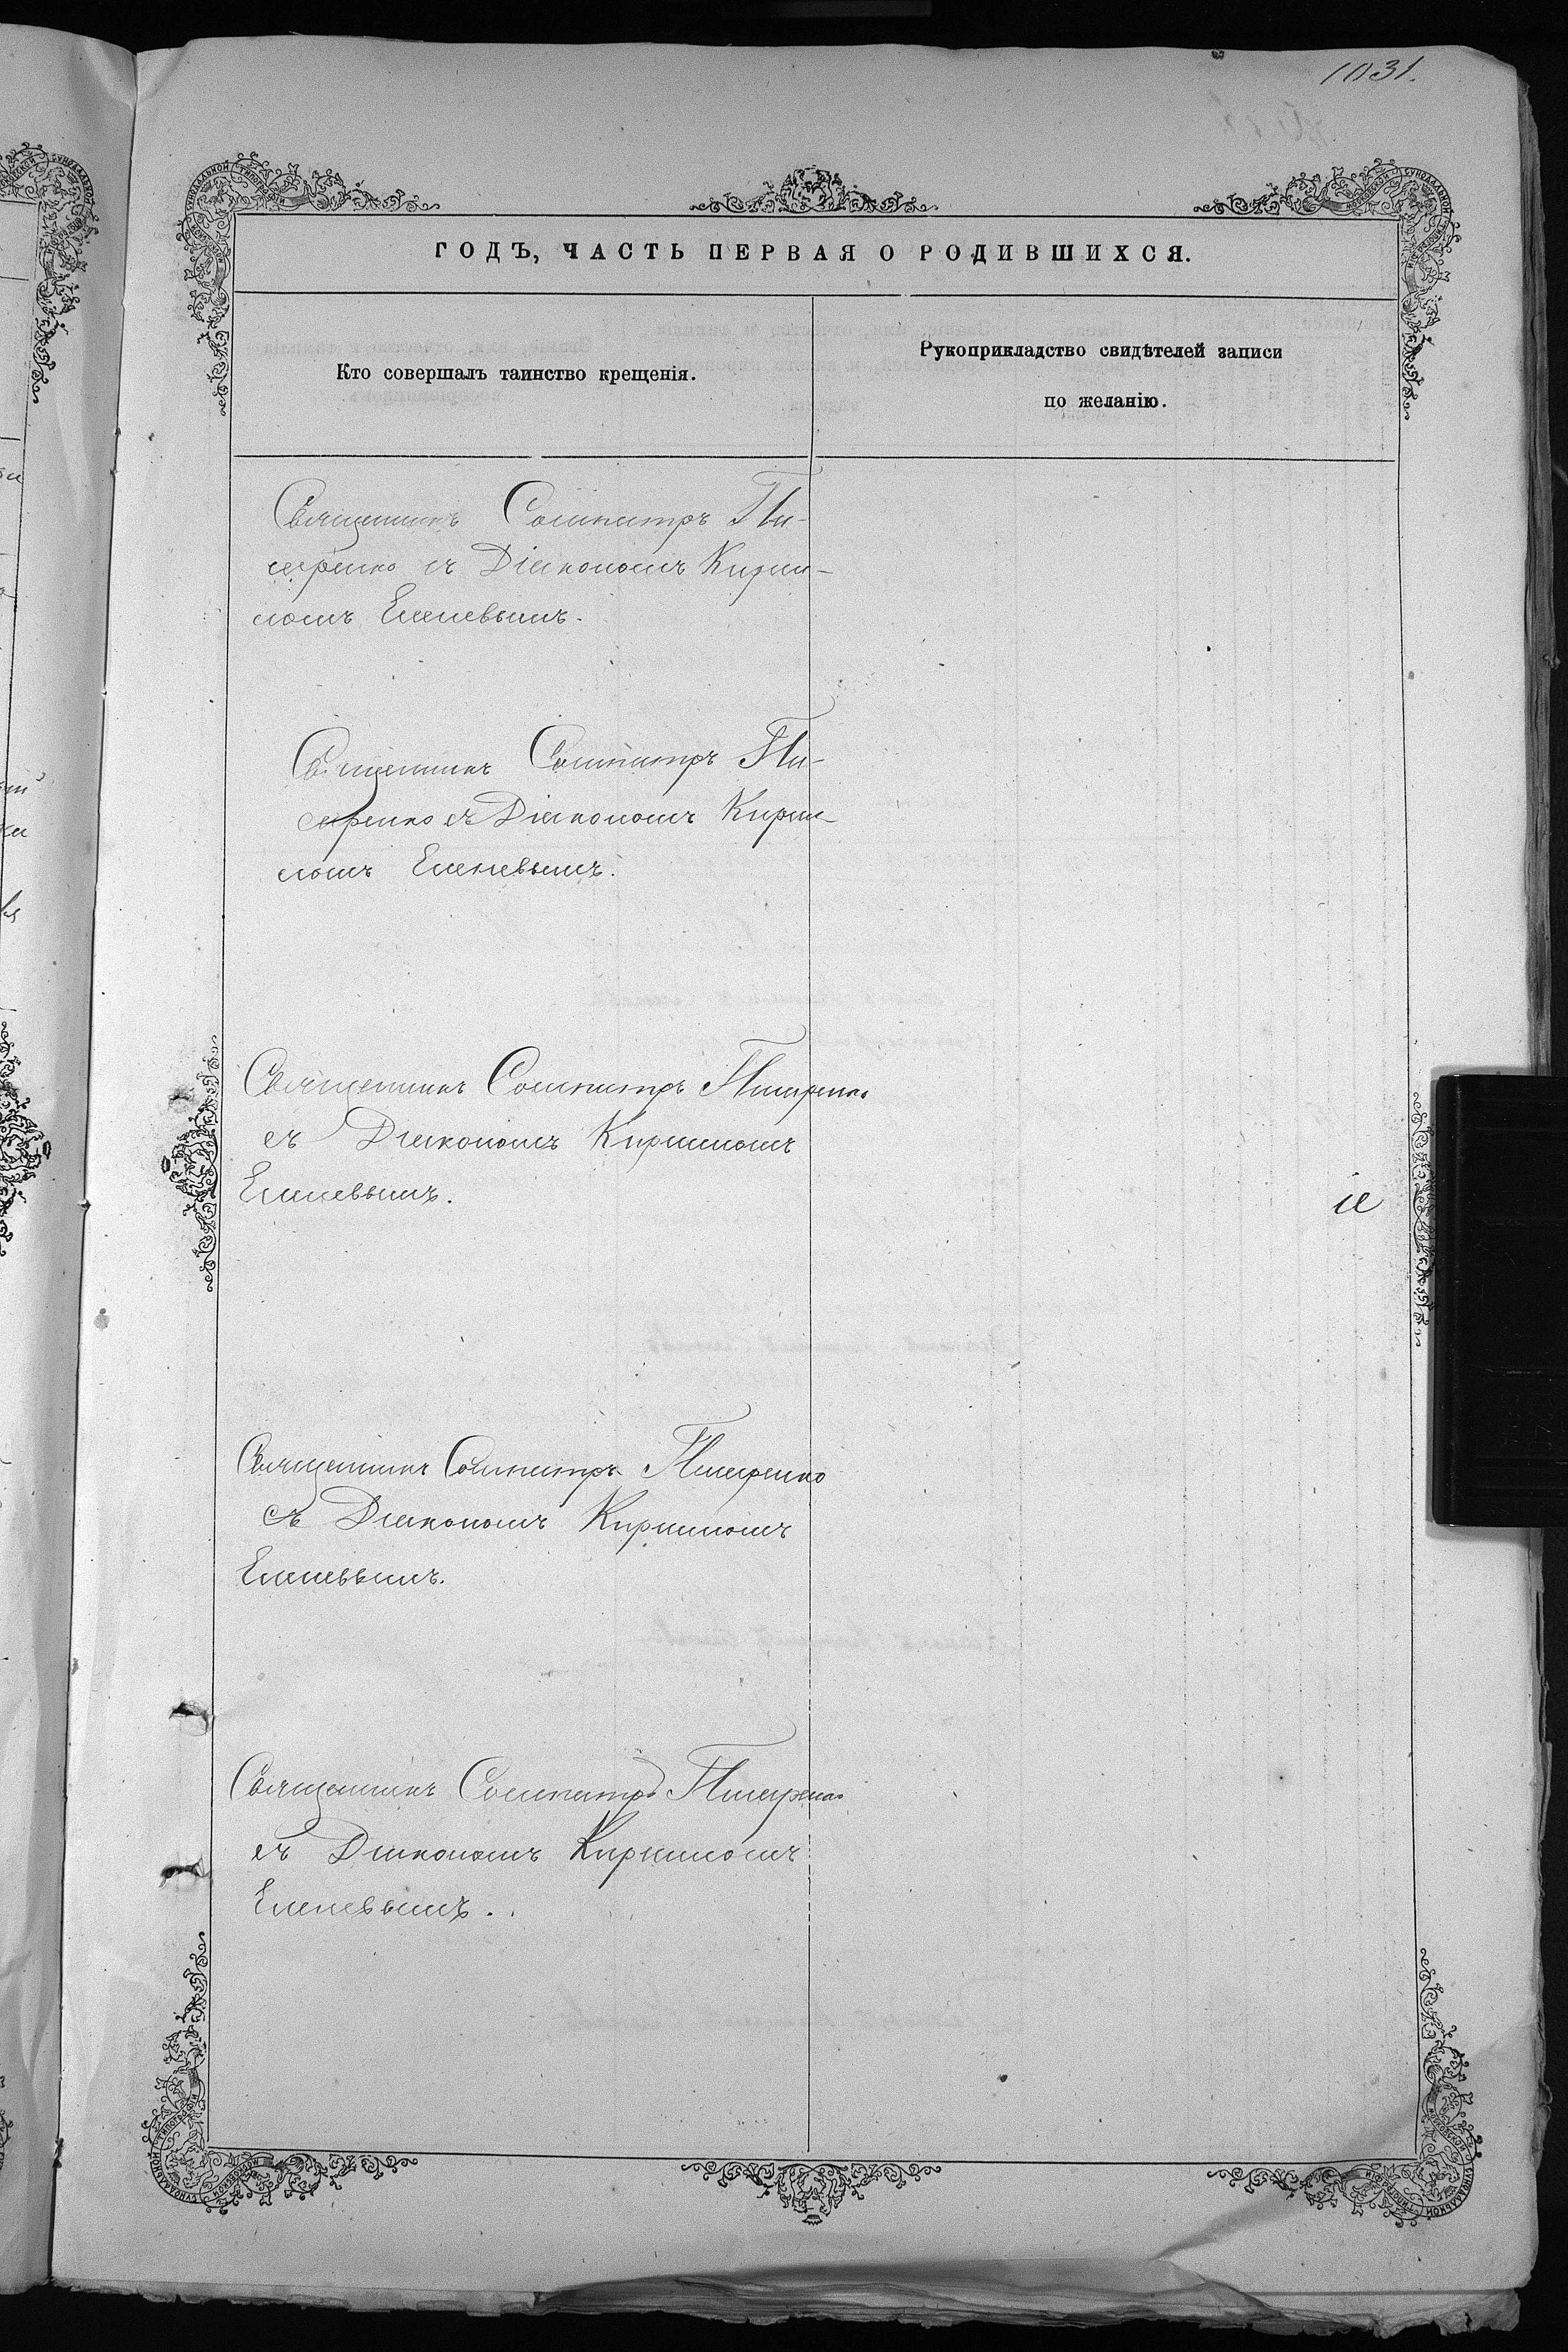 1031.
ГОДЪ, ЧАСТЬ ПЕРВАЯ О РОДИВШИХСЯ.
Кто совершалъ таинство крещенія.
Рукоприкладство свидѣтелей записи
по желанію.
Священникъ Сосипатръ Пи-
саренко съ Діакономъ Кирил-
ломъ Еленевымъ.
Священникъ Сосипатръ Пи-
саренко съ Діакономъ Кирил-
ломъ Еленевымъ.
Священникъ Сосипатръ Писаренко
съ Діакономъ Кирилломъ
Еленевымъ.
Священникъ Сосипатръ Писаренко
съ Діакономъ Кирилломъ
Еленевымъ.
Священникъ Сосипатръ Писаренко
съ Діакономъ Кирилломъ
Еленевымъ.